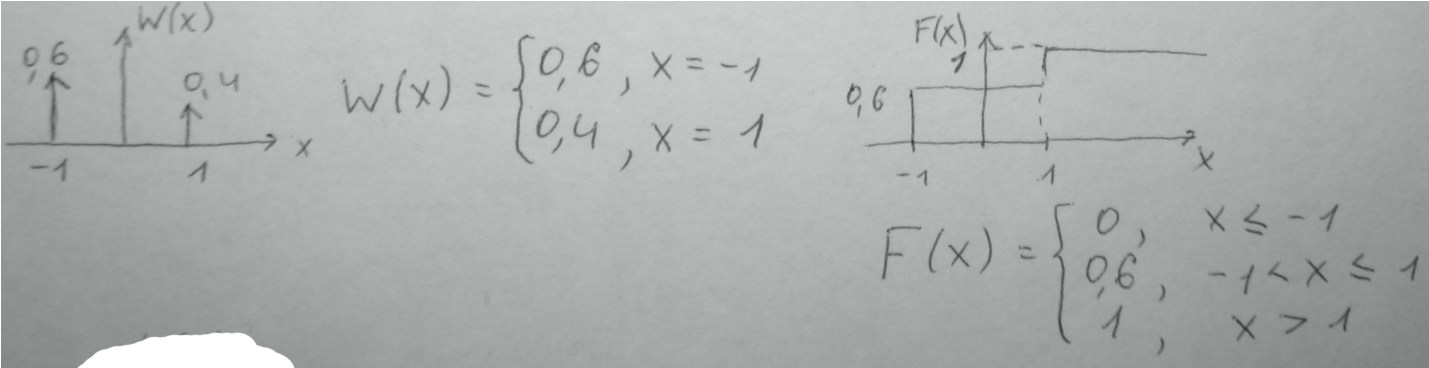 W(x)
0,6
0,4
-1
1
x
W(x) = { 0,6 , x = -1
0,4 , x = 1
F(x)
1
0,6
-1
1
x
F(x) = { 0 , x ≤ -1
0,6 , -1 < x ≤ 1
1 , x > 1